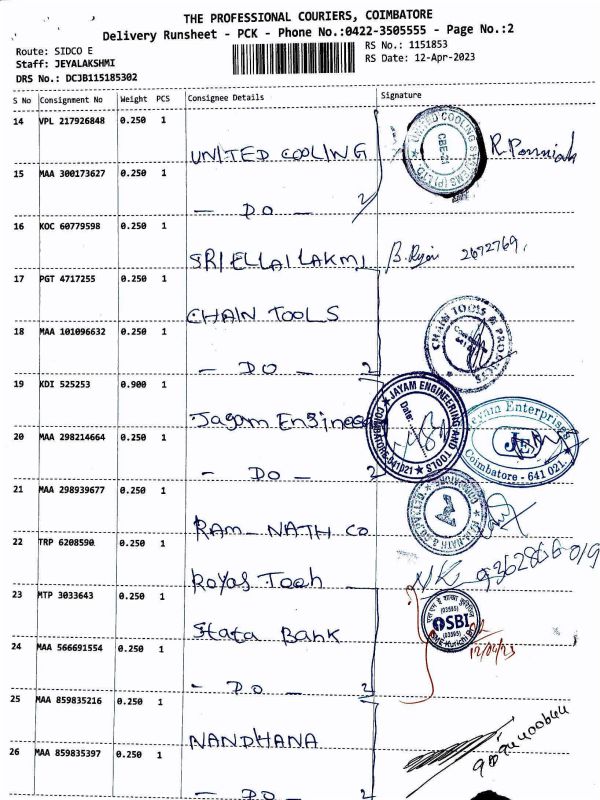 THE PROFESSIONAL COURIERS, COIMBATORE
Delivery Runsheet - PCK - Phone No.:0422-3505555 - Page No.:2
Route: SIDCO E
RS No.: 1151853
Staff: JEYALAKSHMI
RS Date: 12-Apr-2023
DRS No.: DCJB115185302
S No Consignment No Weight PCS Consignee Details Signature
14 VPL 217926848 0.250 1
UNITED COOLING
15 MAA 300173627 0.250 1
- DO - 2
16 KOC 60779598 0.250 1
SRI ELLAI LAKMI 2672769,
17 PGT 4717255 0.250 1
CHAIN TOOLS
18 MAA 101096632 0.250 1
- DO - 2
CHAIN TOOLS & PRODUCTS
19 KDI 525253 0.900 1
Jayam Engineer
JAYAM ENGINEERING AND TOOLS
Date:
COIMBATORE-641021
Jayam Enterprises
JE
Coimbatore - 641 021.
20 MAA 298214664 0.250 1
- DO - 2
21 MAA 298939677 0.250 1
RAM-NATH CO
22 TRP 6208590 0.250 1
Royas Tech
23 MTP 3033643 0.250 1
Stata Bank
(03595)
SBI
(03595)
12/04/23
24 MAA 566691554 0.250 1
- DO - 2
25 MAA 859835216 0.250 1
NANDHANA
26 MAA 859835397 0.250 1
- DO - 2